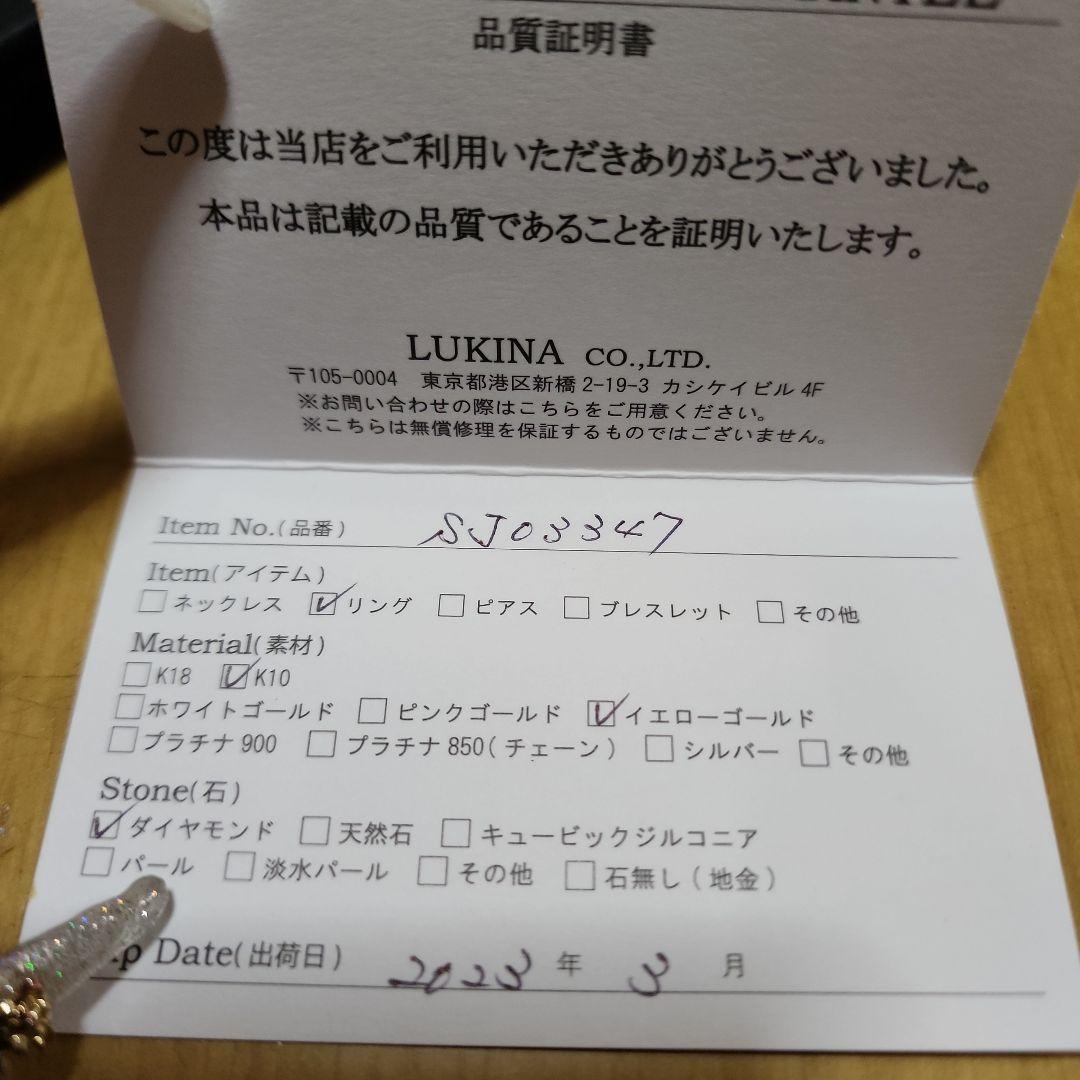 品質証明書
この度は当店をご利用いただきありがとうございました。
本品は記載の品質であることを証明いたします。
LUKINA CO.,LTD.
〒105-0004 東京都港区新橋2-19-3 カシケイビル 4F
※お問い合わせの際はこちらをご用意ください。
※こちらは無償修理を保証するものではございません。
Item No.(品番) SJ03347
Item(アイテム)
☐ネックレス ☑リング ☐ピアス ☐ブレスレット ☐その他
Material(素材)
☐K18 ☑K10
☐ホワイトゴールド ☐ピンクゴールド ☑イエローゴールド
☐プラチナ900 ☐プラチナ850(チェーン) ☐シルバー ☐その他
Stone(石)
☑ダイヤモンド ☐天然石 ☐キュービックジルコニア
☐パール ☐淡水パール ☐その他 ☐石無し(地金)
Date(出荷日) 2023 年 3 月